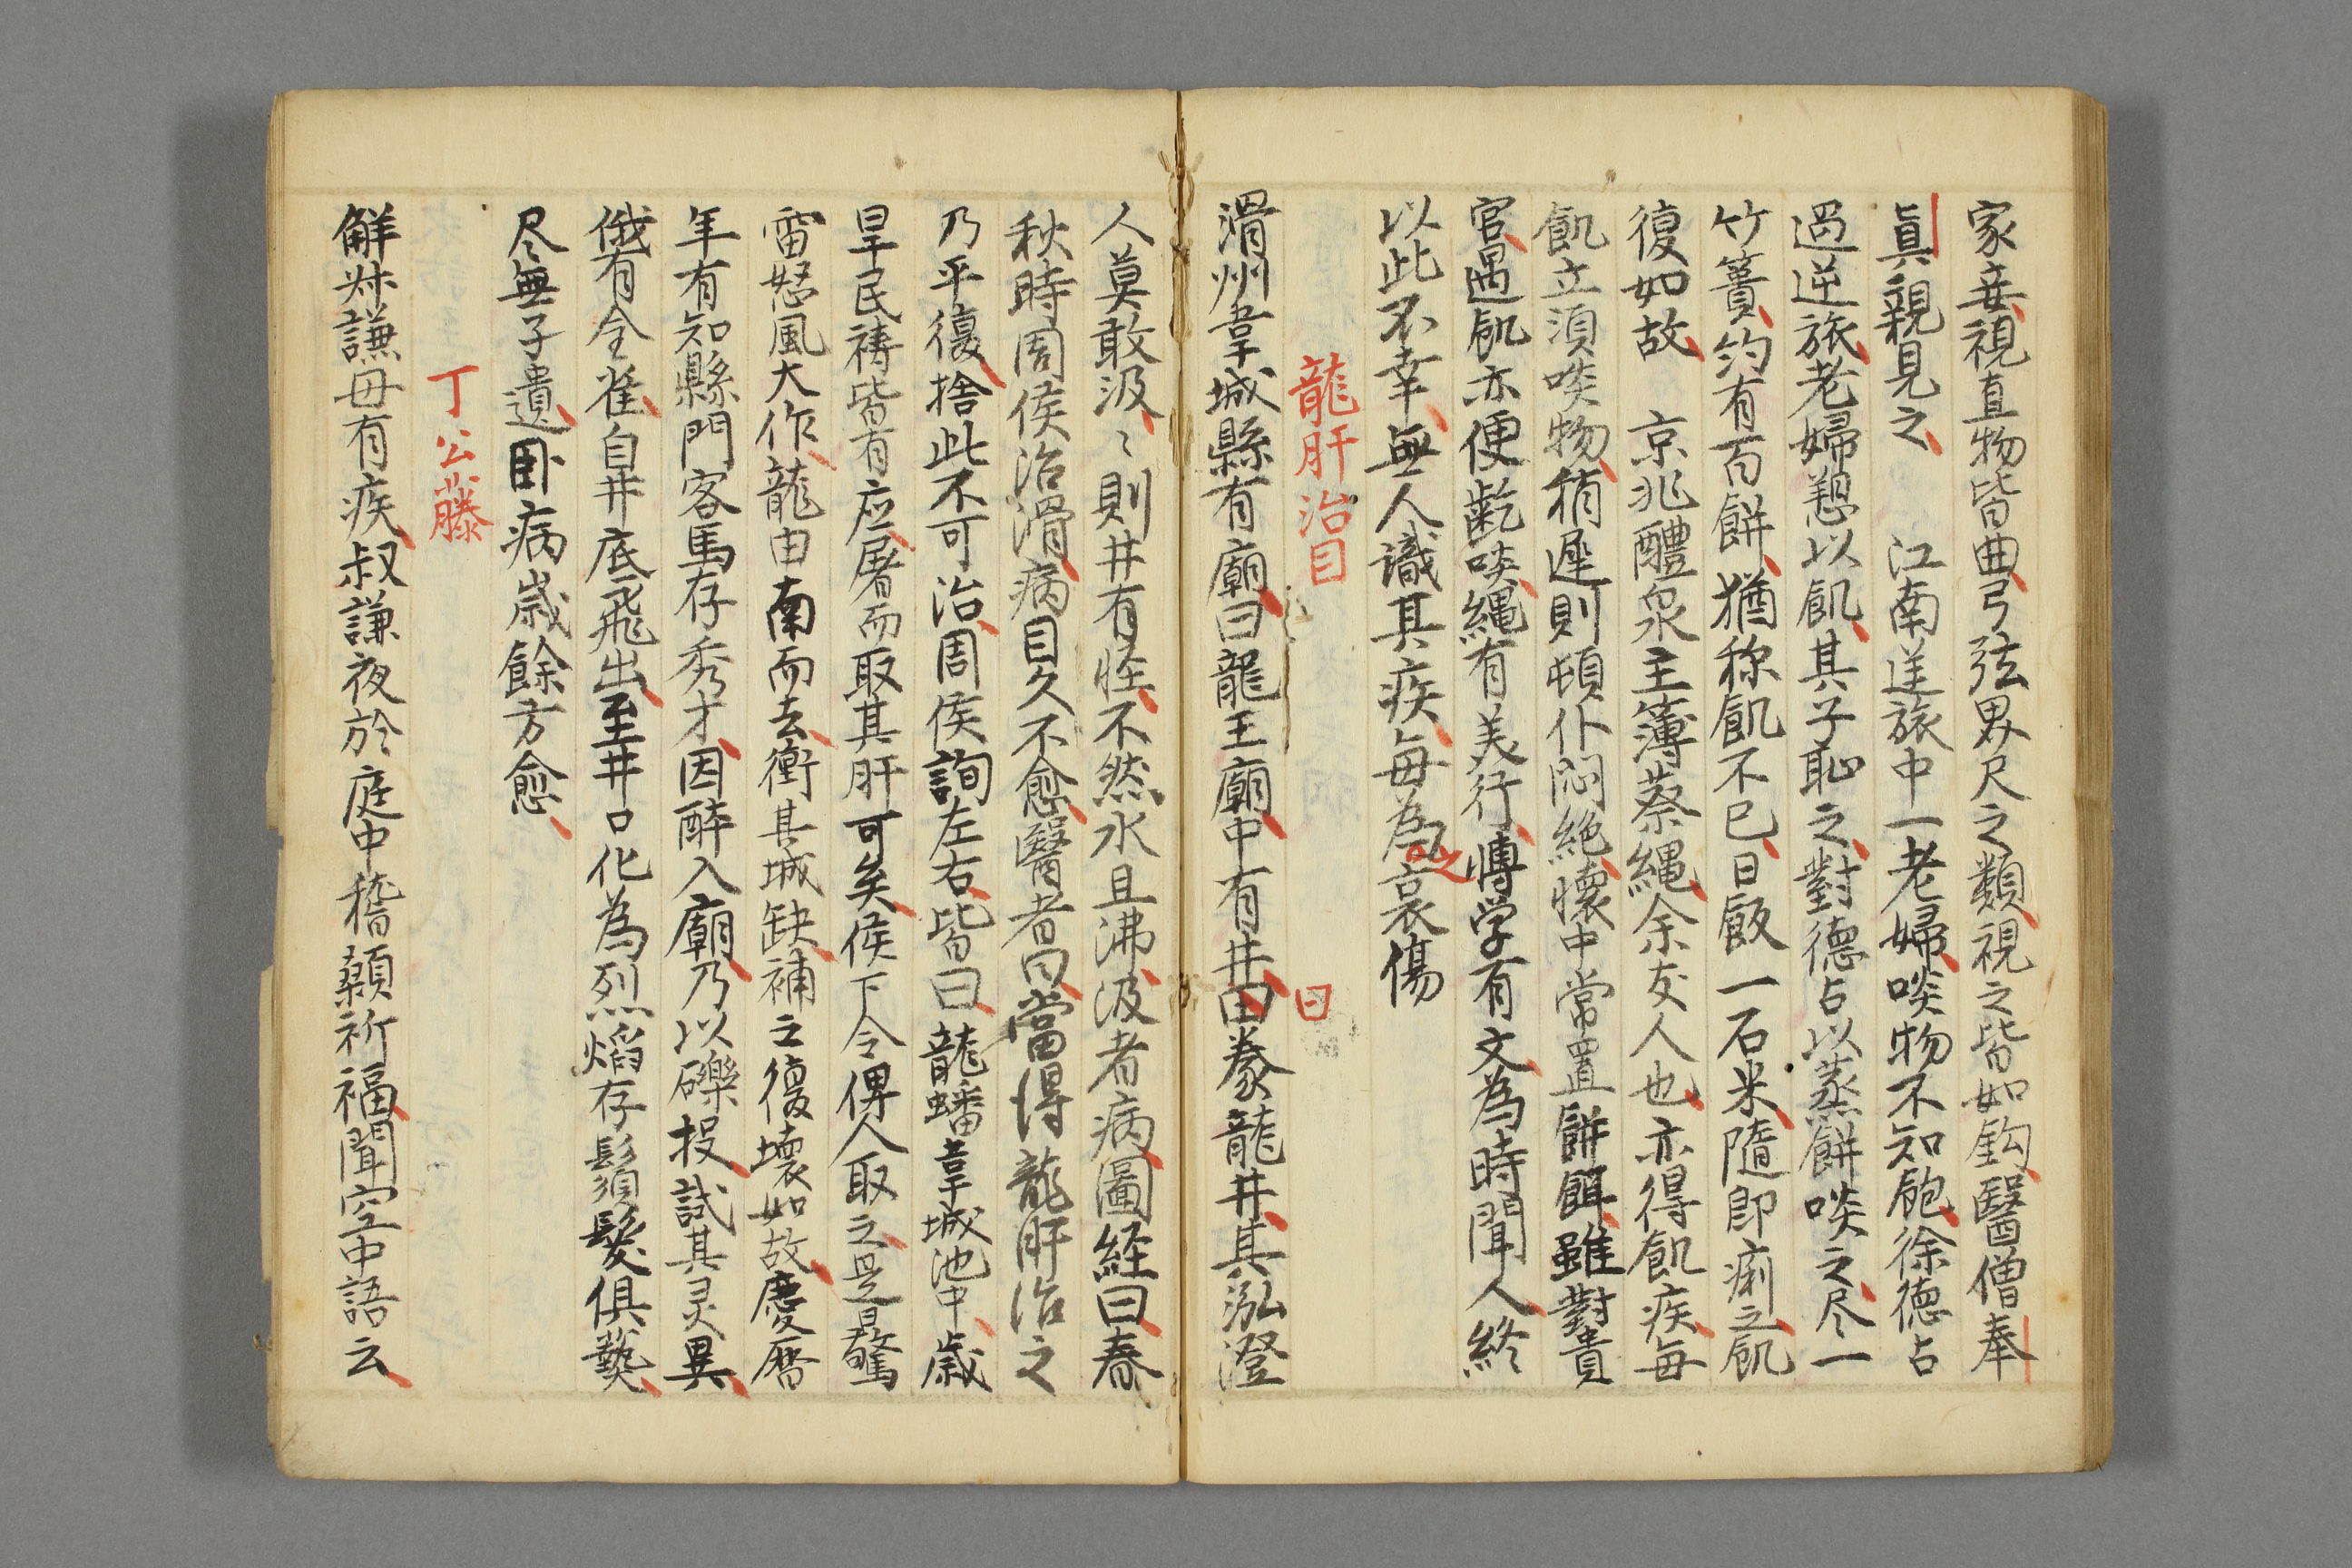 家妾視直物皆曲弓弦界尺之類視之皆如鈎醫僧奉
真親見之　江南逆旅中一老婦啖物不知飽徐德占
過逆旅老婦愬以飢其子恥之對德占以蒸餅啖之尽一
竹簣約有百餅猶称飢不已日飯一石米隨即痢之飢
復如故　京兆醴泉主簿蔡縄余友人也亦得飢疾毎
飢立須啖物稍遲則頓仆悶絶懷中常置餅餌雖對貴
官遇飢亦便齕啖縄有美行博学有文為時聞人終
以此不幸無人識其疾毎為之哀傷
龍肝治目
滑州韋城縣有廟曰龍王廟中有井曰豢龍井其泓澄
曰
人莫敢汲々則井有怪不然水且沸汲者病圖経曰春
秋時周侯治滑病目久不愈醫者曰當得龍肝治之
乃平復捨此不可治周侯詢左右皆曰龍蟠韋城池中歳
旱民祷皆有应屠而取其肝可矣侯下令俾人取之是㬌
雷怒風大作龍由南而去衝其城缺補之復壊如故慶暦
年有知縣門客馬存秀才因醉入廟乃以礫投試其灵異
俄有全雀自井底飛出至井口化為烈焰存鬚髮俱爇
尽無子遺卧病歳餘方愈
丁公藤
解叔謙母有疾叔謙夜於庭中稽顙祈福聞空中語云